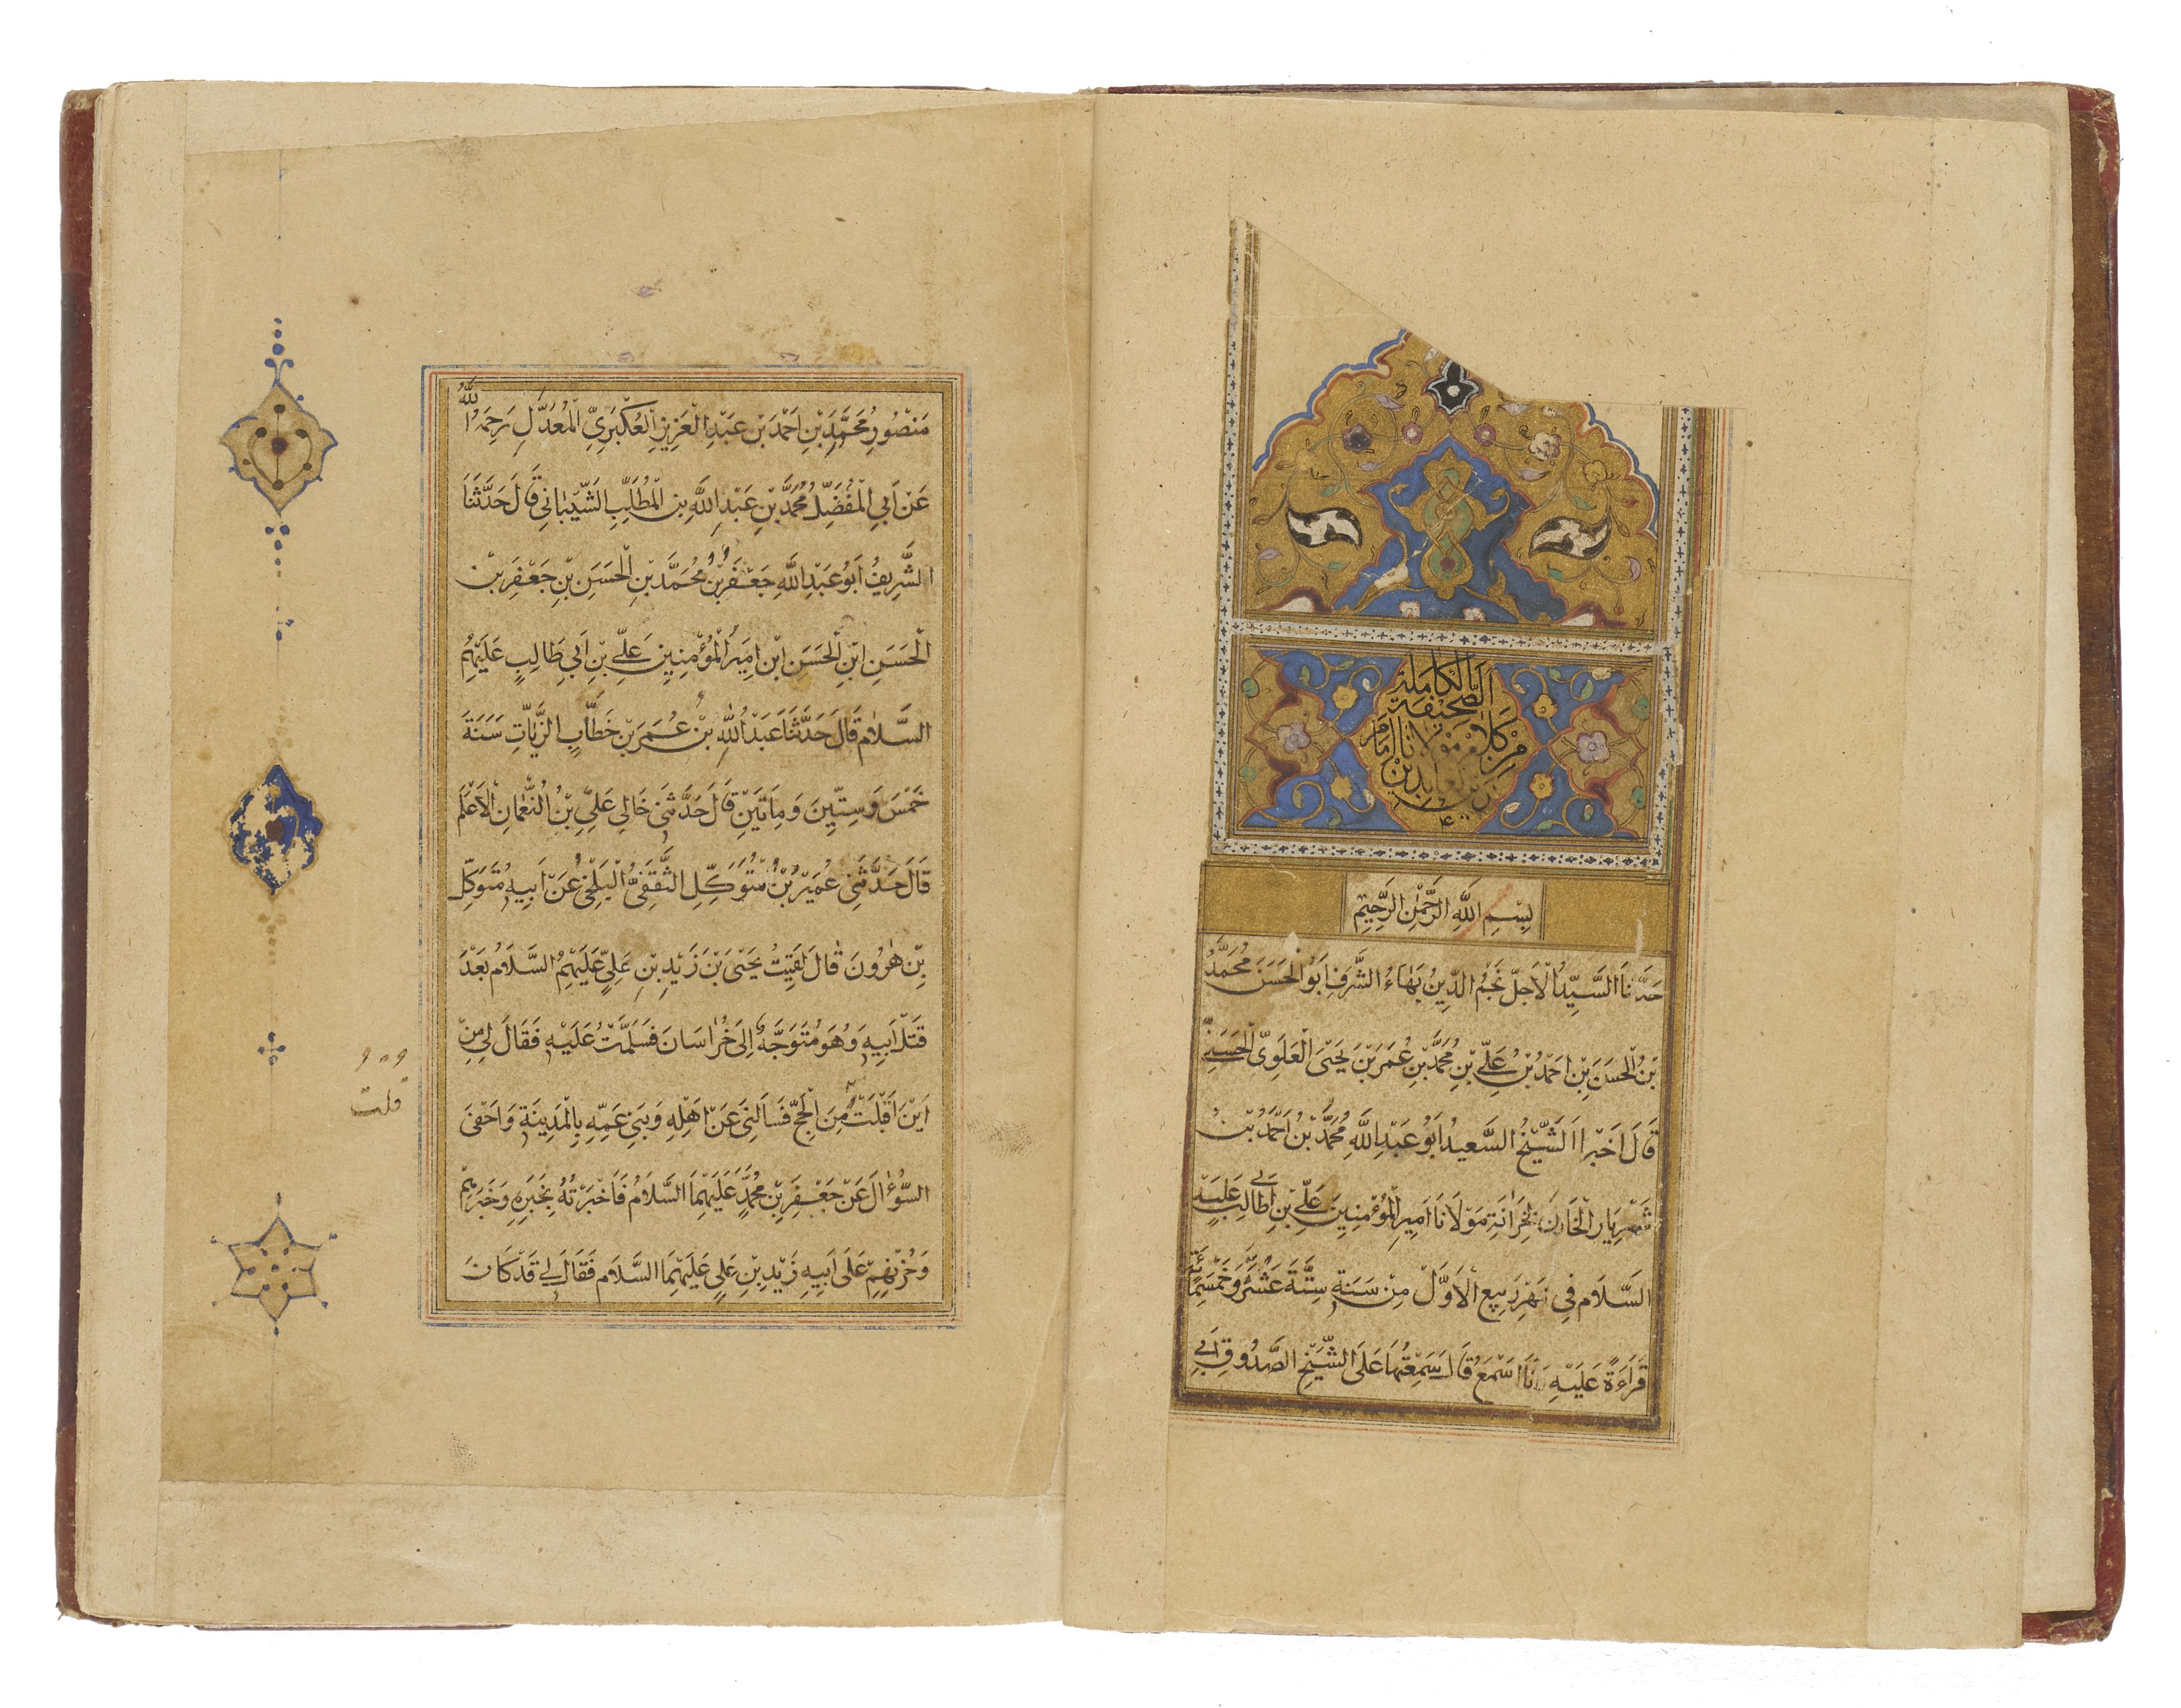 الصحيفة الكاملة
من كلام مولانا الإمام
زين العابدين
بِسْمِ اللَّهِ الرَّحْمٰنِ الرَّحِيمِ
حَدَّثَنَا السَّيِّدُ الْاَجَلُّ نَجْمُ الدِّينِ بَهَاءُ الشَّرَفِ اَبُو الْحَسَنِ مُحَمَّدُ
بْنُ الْحَسَنِ بْنِ اَحْمَدَ بْنِ عَلِيِّ بْنِ مُحَمَّدِ بْنِ عُمَرَ بْنِ يَحْيَى الْعَلَوِيُّ الْحَسَنِيُّ
قَالَ اَخْبَرَنَا الشَّيْخُ السَّعِيدُ اَبُو عَبْدِ اللَّهِ مُحَمَّدُ بْنُ اَحْمَدَ بْنِ
شَهْرِيَارَ الْخَازِنُ لِخِزَانَةِ مَوْلَانَا اَمِيرِ الْمُؤْمِنِينَ عَلِيِّ بْنِ اَبِي طَالِبٍ عَلَيْهِ
السَّلَامُ فِي شَهْرِ رَبِيعِ الْاَوَّلِ مِنْ سَنَةِ سِتَّةَ عَشَرَ وَخَمْسَمِائَةٍ
قَرَاءَةً عَلَيْهِ وَاَنَا اَسْمَعُ قَالَ سَمِعْتُهَا عَلَى الشَّيْخِ الصَّدُوقِ اَبِي
مَنْصُورِ مُحَمَّدِ بْنِ اَحْمَدَ بْنِ عَبْدِ الْعَزِيزِ الْعُكْبَرِيِّ الْمُعَدَّلِ رَحِمَهُ اللّٰهُ
عَنْ اَبِي الْمُفَضَّلِ مُحَمَّدِ بْنِ عَبْدِ اللَّهِ بْنِ الْمُطَّلِبِ الشَّيْبَانِيِّ قَالَ حَدَّثَنَا
الشَّرِيفُ اَبُو عَبْدِ اللَّهِ جَعْفَرُ بْنُ مُحَمَّدِ بْنِ الْحَسَنِ بْنِ جَعْفَرِ بْنِ
الْحَسَنِ ابْنِ الْحَسَنِ ابْنِ اَمِيرِ الْمُؤْمِنِينَ عَلِيِّ بْنِ اَبِي طَالِبٍ عَلَيْهِمُ
السَّلَامُ قَالَ حَدَّثَنَا عَبْدُ اللّٰهِ بْنُ عُمَرَ بْنِ خَطَّابٍ الزَّيَّاتُ سَنَةَ
خَمْسَ وَسِتِّينَ وَمِأَتَيْنِ قَالَ حَدَّثَنِي خَالِي عَلِيُّ بْنُ النُّعْمَانِ الْاَعْلَمُ
قَالَ حَدَّثَنِي عُمَيْرُ بْنُ مُتَوَكِّلٍ الثَّقَفِيُّ الْبَلْخِيُّ عَنْ اَبِيهِ مُتَوَكِّلِ
بْنِ هٰرُونَ قَالَ لَقِيتُ يَحْيَى بْنَ زَيْدِ بْنِ عَلِيٍّ عَلَيْهِمُ السَّلَامُ بَعْدَ
قَتْلِ اَبِيهِ وَهُوَ مُتَوَجِّهٌ اِلَى خُرَاسَانَ فَسَلَّمْتُ عَلَيْهِ فَقَالَ لِي مِنْ
اَيْنَ اَقْبَلْتَ مِنَ الْحَجِّ فَسَاَلَنِي عَنْ اَهْلِهِ وَبَنِي عَمِّهِ بِالْمَدِينَةِ وَاَحْفَى
السُّؤَالَ عَنْ جَعْفَرِ بْنِ مُحَمَّدٍ عَلَيْهِمَا السَّلَامُ فَاَخْبَرْتُهُ بِخَبَرِهِ وَخَبَرِهِمْ
وَحُزْنِهِمْ عَلَى اَبِيهِ زَيْدِ بْنِ عَلِيٍّ عَلَيْهِمَا السَّلَامُ فَقَالَ لِي قَدْ كَانَ
قلت